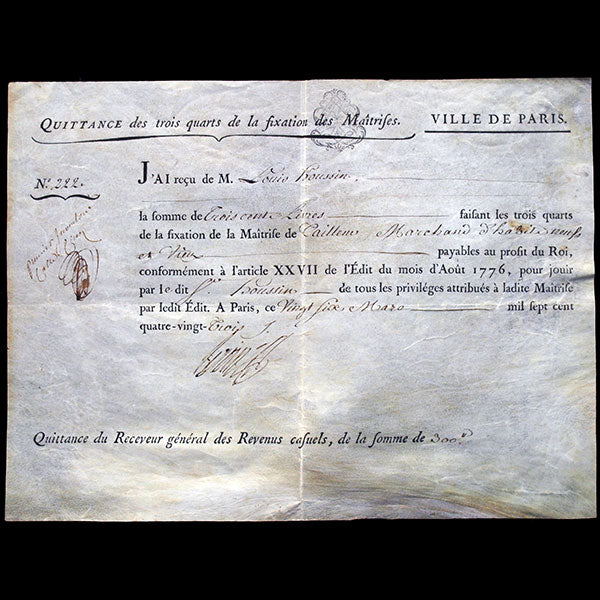 QUITTANCE des trois quarts de la fixation des Maîtrises.
VILLE DE PARIS.
N.º 222.
J'AI reçu de M. Louis houssin
la somme de Trois cent Livres faisant les trois quarts
de la fixation de la Maîtrise de Tailleur Marchand d'habits neufs
et Vieux payables au profit du Roi,
conformément à l'article XXVII de l'Édit du mois d'Août 1776, pour jouir
par le dit Sr. houssin de tous les priviléges attribués à ladite Maîtrise
par ledit Édit. A Paris, ce Vingt six Mars mil sept cent
quatre-vingt-Trois
Quittance du Receveur général des Revenus casuels, de la somme de 300